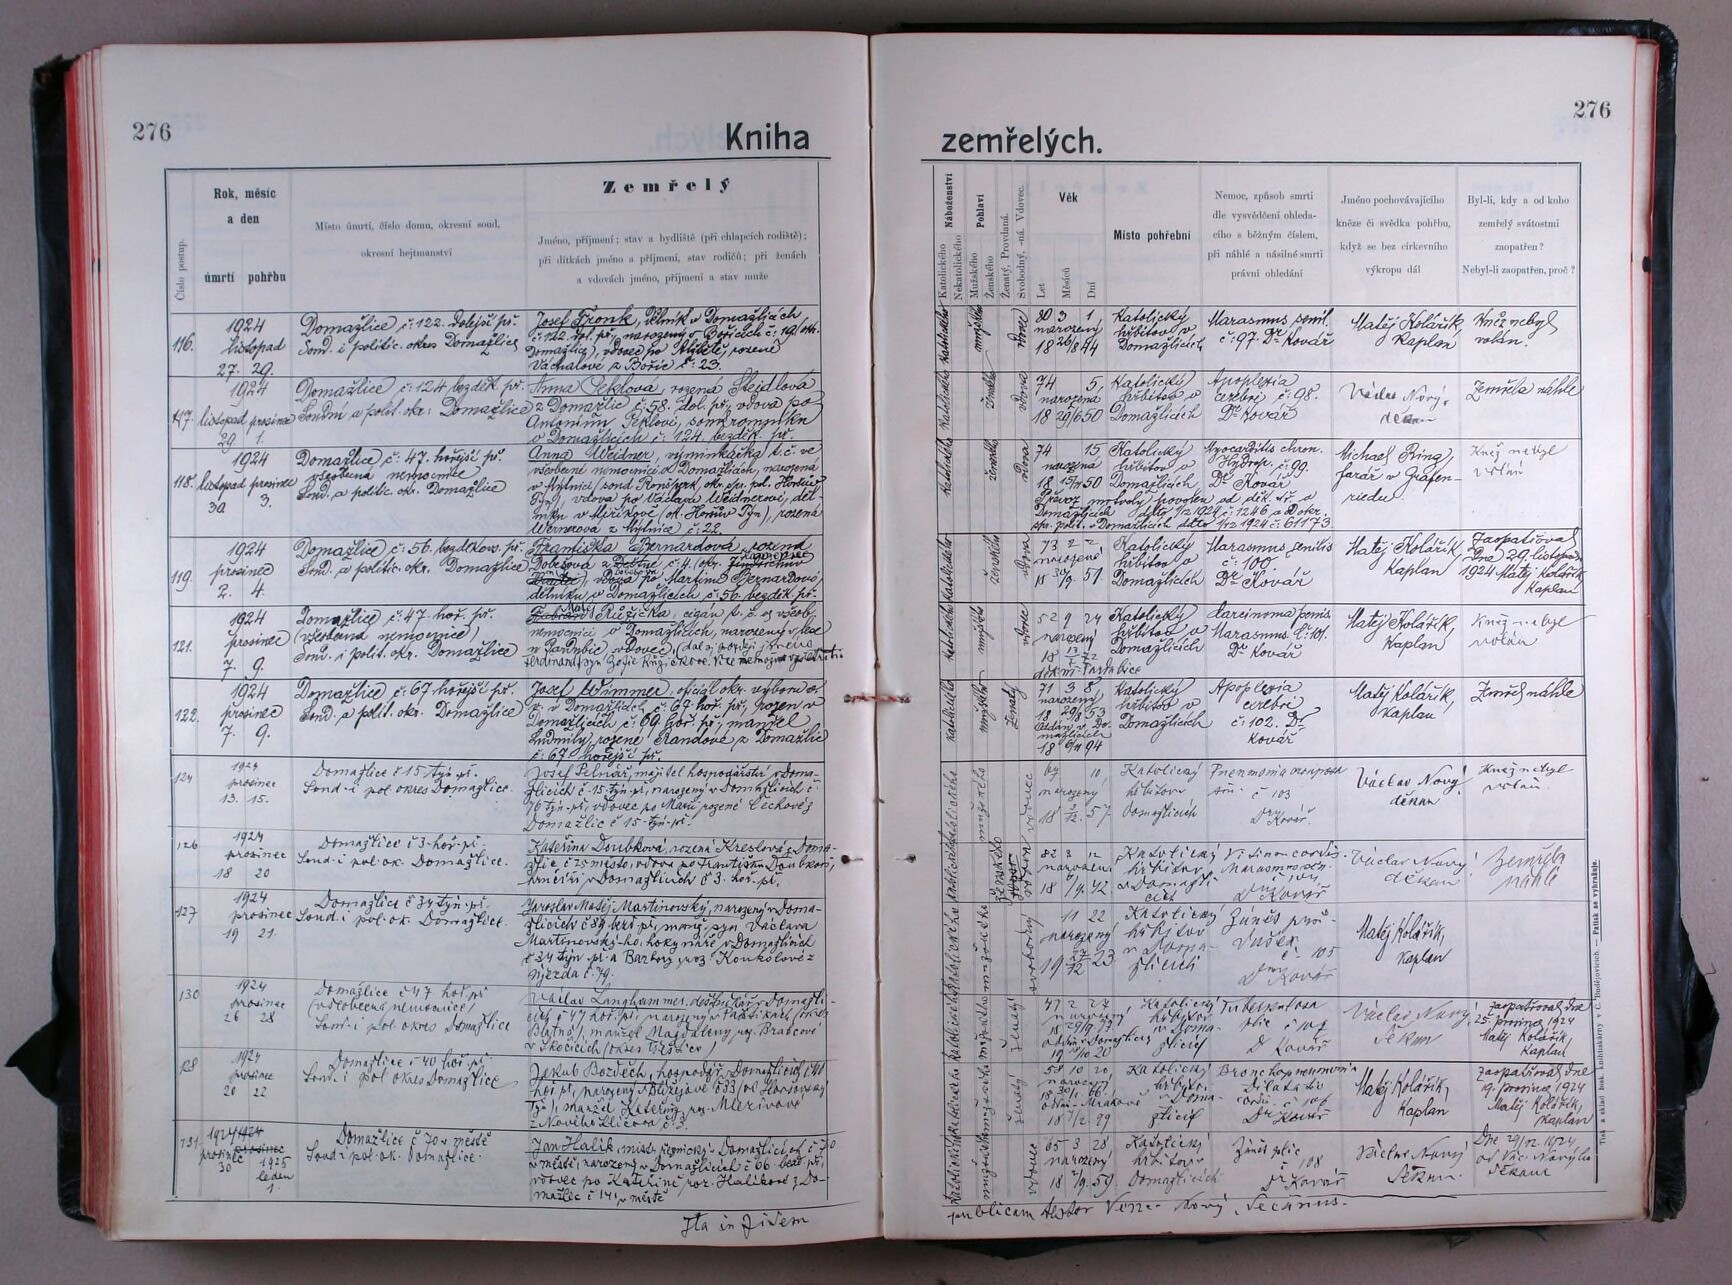 276
Kniha
Číslo postup.
Rok, měsíc
a den
úmrtí pohřbu
Místo úmrtí, číslo domu, okresní soud,
okresní hejtmanství
Zemřelý
Jméno, příjmení; stav a bydliště (při chlapcích rodiště);
při dítkách jméno a příjmení, stav rodičů; při ženách
a vdovách jméno, příjmení a stav muže
116.
1924
listopad
27. 29.
Domažlice č. 122. dolejší př.
Soud. i politic. okres Domažlice
Josef Fronk, dělník v Domažlicích,
č. 122 dol. př., narozený v Bořicích č. 19 (okr.
Domažlice), vdovec po Alžbětě, rozené
Váchalové z Bořic č. 23.
117.
1924
listopad prosinec
29. 1.
Domažlice č. 124 bezděk. př.
Soudní a polit. okr. Domažlice
Anna Peklová, rozená Steidlová
z Domažlic č. 58. dol. př., vdova po
Antonínu Peklovi, soukromníku
v Domažlicích č. 124. bezděk. př.
118.
1924
listopad prosinec
30 3.
Domažlice č. 47. hořejší př.
všeobecná nemocnice
Soud. a politic. okr. Domažlice
Anna Weidner, výminkářka t. č. ve
všeobecné nemocnici v Domažlicích, narozená
v Mýtnici (soud Ronšperk, okr. sp. pol. Horšův
Týn), vdova po Václavu Weidnerovi, děl-
níku v Mířkově (ok. Horšův Týn), rozená
Wernerová z Mýtnice č. 22.
119.
1924
prosinec
2. 4.
Domažlice č. 56. bezděkov. př.
Soud. a politic. okr. Domažlice
Františka Bernardová, rozená
vdova po Martinu Bernardovi,
dělníku v Domažlicích č. 56. bezděk. př.
121.
1924
prosinec
7. 9.
Domažlice č. 47. hoř. př.
(všeobecná nemocnice)
Soud. i polit. okr. Domažlice
Růžička, cigán t. č. ve všeob.
nemocnici v Domažlicích, narozený v
122.
1924
prosinec
7. 9.
Domažlice č. 67 hořejší př.
Soud. a polit. okr. Domažlice
Josef Wimmer, oficiál okr. výboru v
v. v Domažlicích č. 67. hoř. př., rozen v
Domažlicích č. 69. hoř. př., manžel
Ludmily, rozené Randové z Domažlic
č. 67 hořejší př.
124
1924
prosinec
13. 15.
Domažlice č 15 týn. př.
Soud-i pol okres Domažlice.
Josef Pelnář, majitel hospodářství v Doma-
žlicích č. 15-týn-př., narozený v Domažlicích č.
76 týn-př., vdovec po Marii rozené Čechové z
Domažlic č 15-týn-př.
126
1924
prosinec
18 20
Domažlice č 3-hoř-př.
Soud-i pol ok. Domažlice.
Kateřina Doubková, rozená Kreslová z Doma-
žlic č 25 město, vdova po Františku Doubkovi,
v Domažlicích č 3. hoř. př.
127
1924
prosinec
19 21.
Domažlice č 34 týn-př.
Soud-i pol-ok. Domažlice.
Jaroslav Matěj Martinovský, narozený v Doma-
žlicích č 84 bezd př., syn Václava
Martinovského, v Domažlicích
č 34 týn-př. a Barbory roz Konkolové z
Újezda č 79.
130
1924
prosinec
26 28
Domažlice č 47 hoř př
(všeobecná nemocnice)
Soud-i pol okres Domažlice
Václav Langhammer, v Domažli-
cích č 47 hoř. př., narozený v
Blatná), manžel Magdaleny roz. Brabcové
v Škočicích (okres
128
1924
prosinec
20 22
Domažlice č 40 hoř. př.
Soud-i pol okres Domažlice
Jakub Bozděch, hospodář v Domažlicích č 40
hoř př., narozený v č 33 (ok Horšovský
Týn), manžel Kateřiny roz.
z Nového č. 3.
131.
1924
prosinec
30
1925
leden
1.
Domažlice č 70 v městě
Soud-i pol-ok. Domažlice.
Jan Halík, mistr řeznický v Domažlicích č 70
v městě, narozený v Domažlicích č 66 bezd př.,
vdovec po Kateřině roz. Halíkové z Do-
mažlic č 141 v městě
Ita in fidem
276
zemřelých.
Náboženství
Katolického
Nekatolického
Pohlaví
Mužského
Ženského
Ženatý, Provdaná.
Svobodný, -ná. Vdovec.
Věk
Let
Měsíců
Dní
Místo pohřební
Nemoc, způsob smrti
dle vysvědčení ohleda-
cího s běžným číslem,
při náhlé a násilné smrti
právní ohledání
Jméno pochovávajícího
kněze či svědka pohřbu,
když se bez církevního
výkropu dál
Byl-li, kdy a od koho
zemřelý svátostmi
zaopatřen?
Nebyl-li zaopatřen, proč?
katolického mužského vdovec
80 3 1,
narozený
18 26/8 44
Katolický
hřbitov v
Domažlicích
Marasmus senil.
č. 97. Dr Kovář
Matěj Kolářík,
kaplan
Kněz nebyl
volán.
katolického ženského vdova
74 5,
narozena
18 29/6 50
Katolický
hřbitov v
Domažlicích
Apoplexia
cerebri č. 98.
Dr Kovář
Václav Nový,
děkan
Zemřela náhle
katolického ženského vdova
74 15
narozená
18 15/11 50
Katolický
hřbitov v
Domažlicích
Myocarditis chron.
Hydrop. č. 99.
Dr Kovář
Převoz mrtvoly povolen od děk. úř. v
Domažlicích dto 1/12 1924 č. 1246 a od okr.
spr. polit. v Domažlicích dto 1/12 1924 č. 61173
Michael Ring,
farář v Grafen-
riedu.
Kněz nebyl
volán
katolického ženského vdova
73 2 2
narozená
18 30/9. 51.
Katolický
hřbitov v
Domažlicích
Marasmus senilis
č. 100
Dr Kovář
Matěj Kolářík,
kaplan
Zaopatřoval
dne 29. listopadu
1924 Matěj Kolářík,
kaplan
katolického mužského vdovec
52 9 24
narozený
Katolický
hřbitov v
Domažlicích
Carcinoma penis
Marasmus. č. 101.
Dr Kovář
Matěj Kolářík,
kaplan
Kněz nebyl
volán
katolického mužského ženatý
71 3 8
narozený
18 29/8 53
Oddán v Do-
mažlicích
18 6/11 94
Katolický
hřbitov v
Domažlicích
Apoplexia
cerebri
č. 102. Dr
Kovář
Matěj Kolářík,
kaplan
Zemřel náhle
katolického mužského vdovec
67 10
narozený
18 3/12. 57
Katolický
hřbitov
Domažlicích
Pneumonia crouposa
č 103
Dr Kovář.
Václav Nový
děkan
Kněz nebyl
volán.
katolického ženského
82 3 12
narození
18 7/9. 42
Katolický
hřbitov
v Domažli-
cích
Vitium cordis.
Marasmus
Dr Kovář
Václav Nový
děkan
Zemřela
náhle
katolického mužského svobodný
11 22
narozený
19 27/12 23
Katolický
hřbitov
v Doma-
žlicích
Zánět prů-
dušek
č. 105
Dr Kovář
Matěj Kolářík,
kaplan
katolického mužského ženatý
47 2 27
narozený
18 29/9 77
Katolický
hřbitov
v Doma-
žlicích
Tuberculosa
plic č 107
Dr Kovář
Václav Nový
děkan
zaopatřoval dne
25. prosince 1924
Matěj Kolářík,
kaplan
katolického mužského ženatý
58 10 20
narozený
18 30/1 66.
18 7/2 99
Katolický
hřbitov
v Doma-
žlicích
Bronchopneumonia
Dilatatio
cordis č 106
Dr Kovář
Matěj Kolářík,
kaplan
zaopatřoval dne
19. prosince 1924
Matěj Kolářík,
kaplan
katolického mužského vdovec
65 3 28
narozený
18 /9. 59
Katolický
hřbitov
Domažlicích
Zánět plic
108
Dr Kovář
Václav Nový
děkan
Dne 29/12. 1924
od Vác. Nového
děkana
publicam testor Nový, decanus.
Tisk a sklad bisk. knihtiskárny v Č. Budějovicích. — Patisk se vyhražuje.